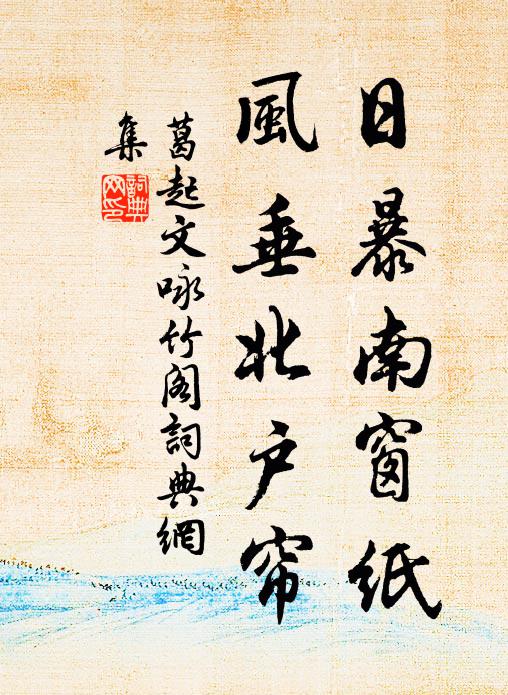 日暴南窗紙
風垂北戶帘
葛起文咏竹阁詞典網
集
詞典
网印